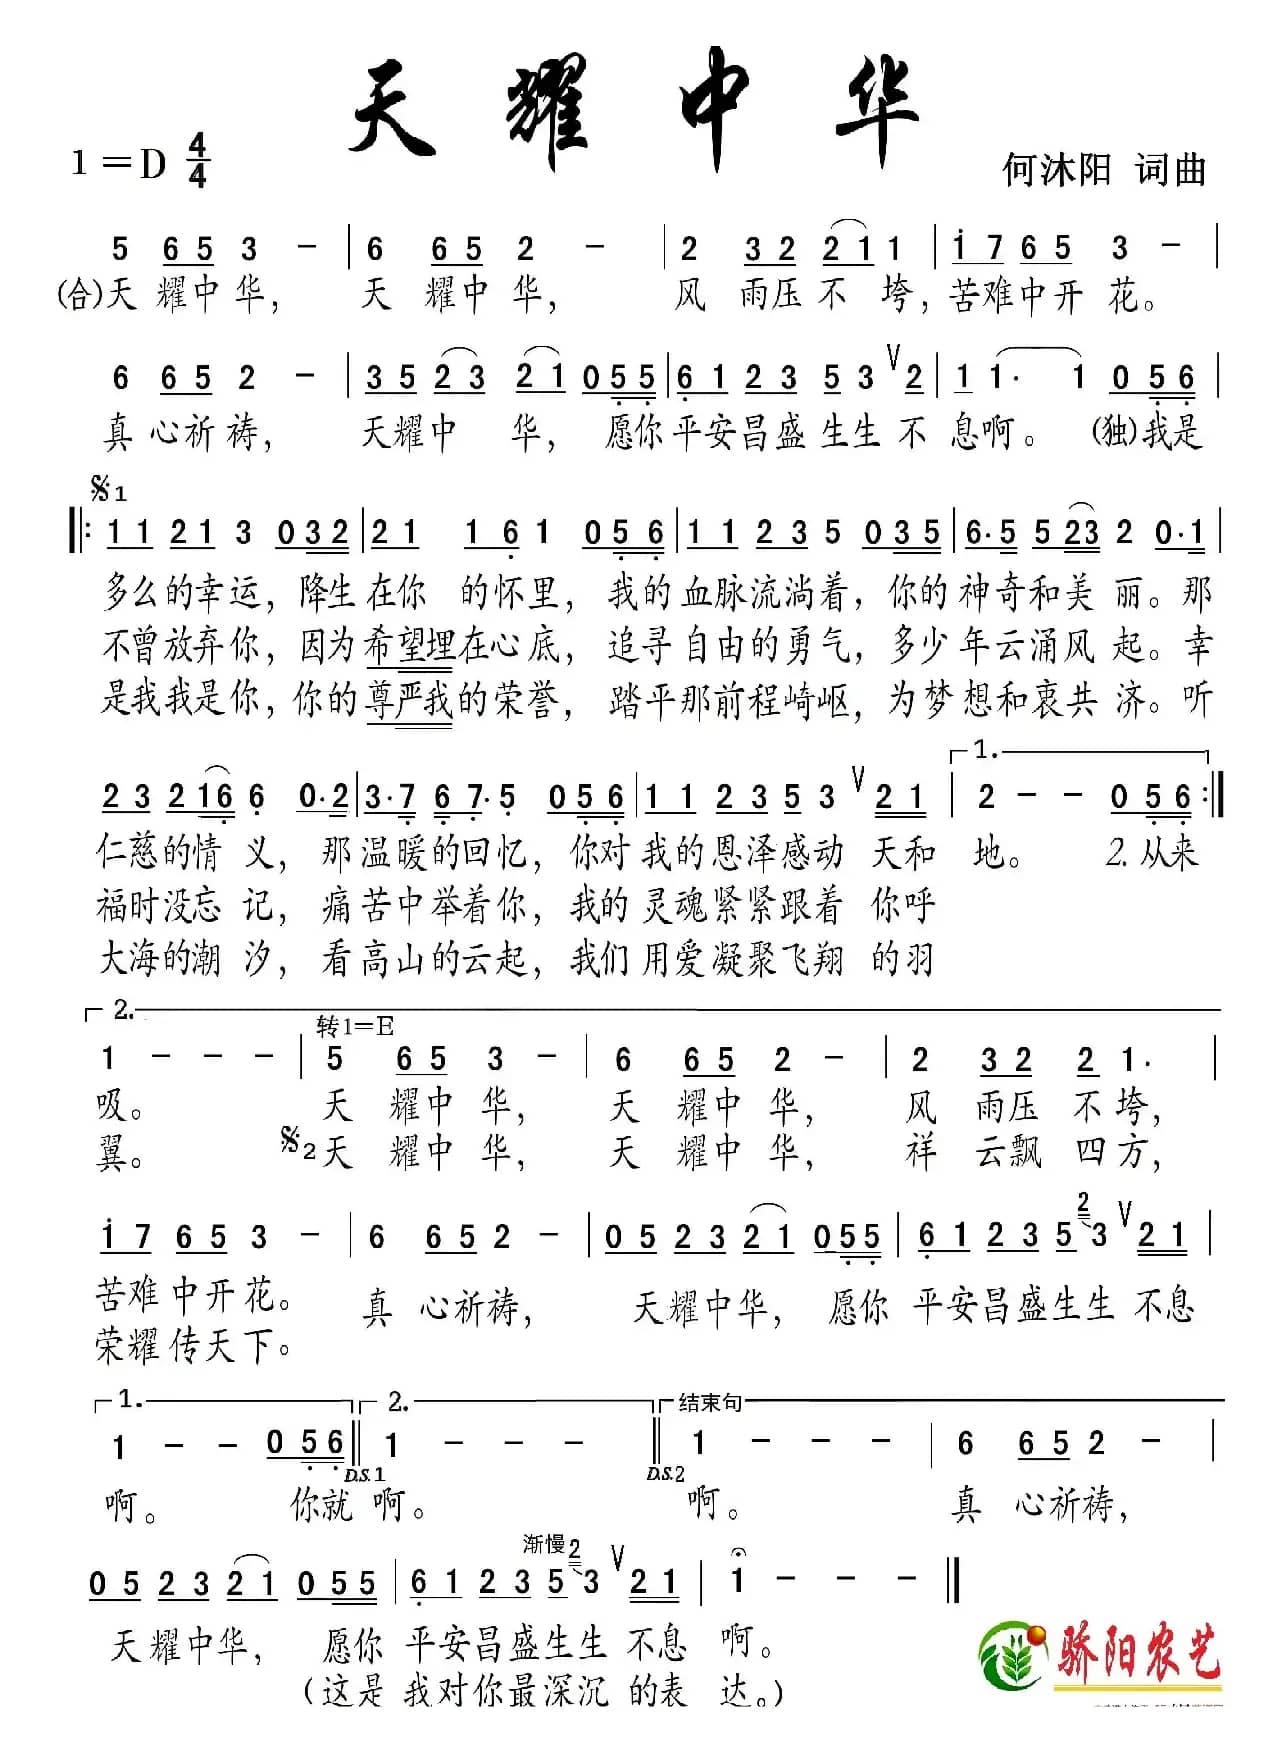 天耀中华
1=D 4/4
何沐阳 词曲
5 6 5 3 - | 6 6 5 2 - | 2 3 2 2 1 1 | 1 7 6 5 3 - |
(合)天 耀中华, 天 耀中华, 风 雨压不 垮,苦难中开 花。
6 6 5 2 - | 3 5 2 3 2 1 0 5 5 | 6 1 2 3 5 3 V 2 | 1 1· 1 0 5 6 |
真 心祈祷, 天耀中 华, 愿你平安昌盛生生 不 息啊。 (独)我是
𝄋1
‖: 1 1 2 1 3 0 3 2 | 2 1 1 6 1 0 5 6 | 1 1 2 3 5 0 3 5 | 6· 5 5 2 3 2 0· 1 |
多么的幸运, 降生在你 的怀里, 我的血脉流淌着,你的神奇和美 丽。那
不曾放弃你, 因为希望埋在心底, 追寻自由的勇气,多少年云涌风 起。幸
是我我是你,你的尊严我的荣誉, 踏平那前程崎岖,为梦想和衷共 济。听
1.
2 3 2 1 6 6 0· 2 | 3· 7 6 7· 5 0 5 6 | 1 1 2 3 5 3 V 2 1 | 2 - - 0 5 6 :‖
仁慈的情 义, 那温暖的回忆,你对我的恩泽感动 天和 地。 2.从来
福时没忘 记, 痛苦中举着你,我的灵魂紧紧跟着 你呼
大海的潮 汐, 看高山的云起,我们用爱凝聚飞翔 的羽
2.
转1=E
1 - - - | 5 6 5 3 - | 6 6 5 2 - | 2 3 2 2 1· |
吸。 天 耀中华, 天 耀中华, 风 雨压不垮,
翼。 𝄋2天 耀中华, 天 耀中华, 祥 云飘四方,
1 7 6 5 3 - | 6 6 5 2 - | 0 5 2 3 2 1 0 5 5 | 6 1 2 3 5 2 3 V 2 1 |
苦难中开花。 真 心祈祷, 天耀中华, 愿你 平安昌盛生生 不息
荣耀传天下。
1. 2. 结束句
1 - - 0 5 6 ‖ 1 - - - ‖ 1 - - - | 6 6 5 2 - |
D.S.1 D.S.2
啊。 你就 啊。 啊。 真 心祈祷,
渐慢
0 5 2 3 2 1 0 5 5 | 6 1 2 3 5 2 3 V 2 1 | 1 - - - ‖
天耀中华, 愿你 平安昌盛生生 不息 啊。
(这是 我对你最深沉 的表 达。)
骄阳农艺